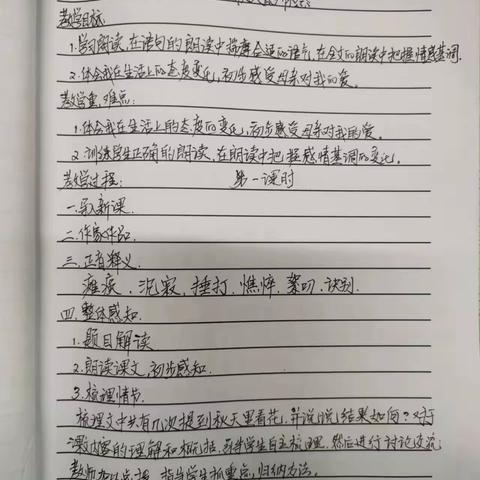 教学目标:
1.学习朗读,在语句的朗读中揣摩合适的语气,在全文的朗读中把握情感基调.
2.体会我在生活上的态度变化,初步感受母亲对我的爱。
教学重、难点:
1.体会我在生活上的态度的变化,初步感受母亲对我的爱。
2.训练学生正确的朗读,在朗读中把握感情基调的变化。
教学过程: 第一课时
一.导入新课.
二.作家作品.
三.正音释义.
瘫痪、沉寂、捶打、憔悴、絮叨、诀别.
四.整体感知.
1.题目解读
2.朗读课文,初步感知.
3.梳理情节.
梳理文中共有几次提到秋天里看花,并说说结果如何?对于
课文内容的理解和概括,引导学生自主梳理,然后进行讨论交流,
教师加以点拨,指导学生抓重点,归纳方法。